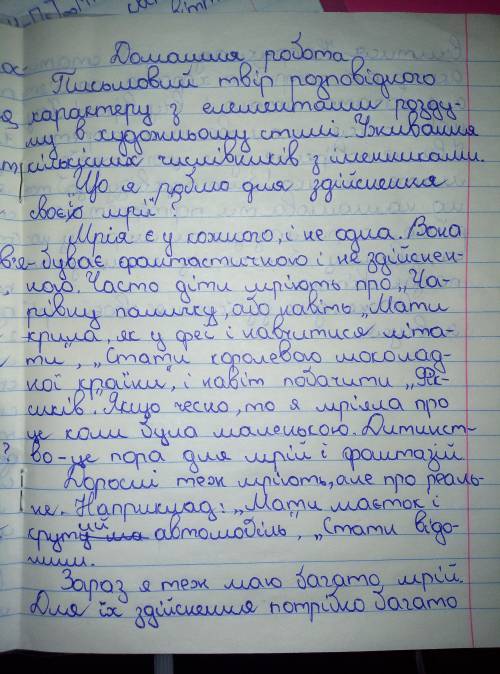 Домашня робота
Письмовий твір розповідного
характеру з елементами розду-
му в художньому стилі. Уживання
кількісних числівників з іменниками.
Що я роблю для здійснення
своєї мрії?
Мрія є у кожного, і не одна. Вона
буває фантастичною і не здійснен-
ною. Часто діти мріють про „Ча-
рівну паличку, або навіть „Мати
крила, як у феї і навчитися літа-
ти", „Стати королевою шоколад-
ної країни", і навіт побачити „Фік-
сиків". Якщо чесно, то я мріяла про
це коли була маленькою. Дитинст-
во - це пора для мрій і фантазій.
Дорослі теж мріють, але про реаль-
не. Наприклад: „Мати маєток і
крутий автомобіль", „Стати відо-
мим.
Зараз я теж маю багато мрій.
Для їх здійснення потрібно багато